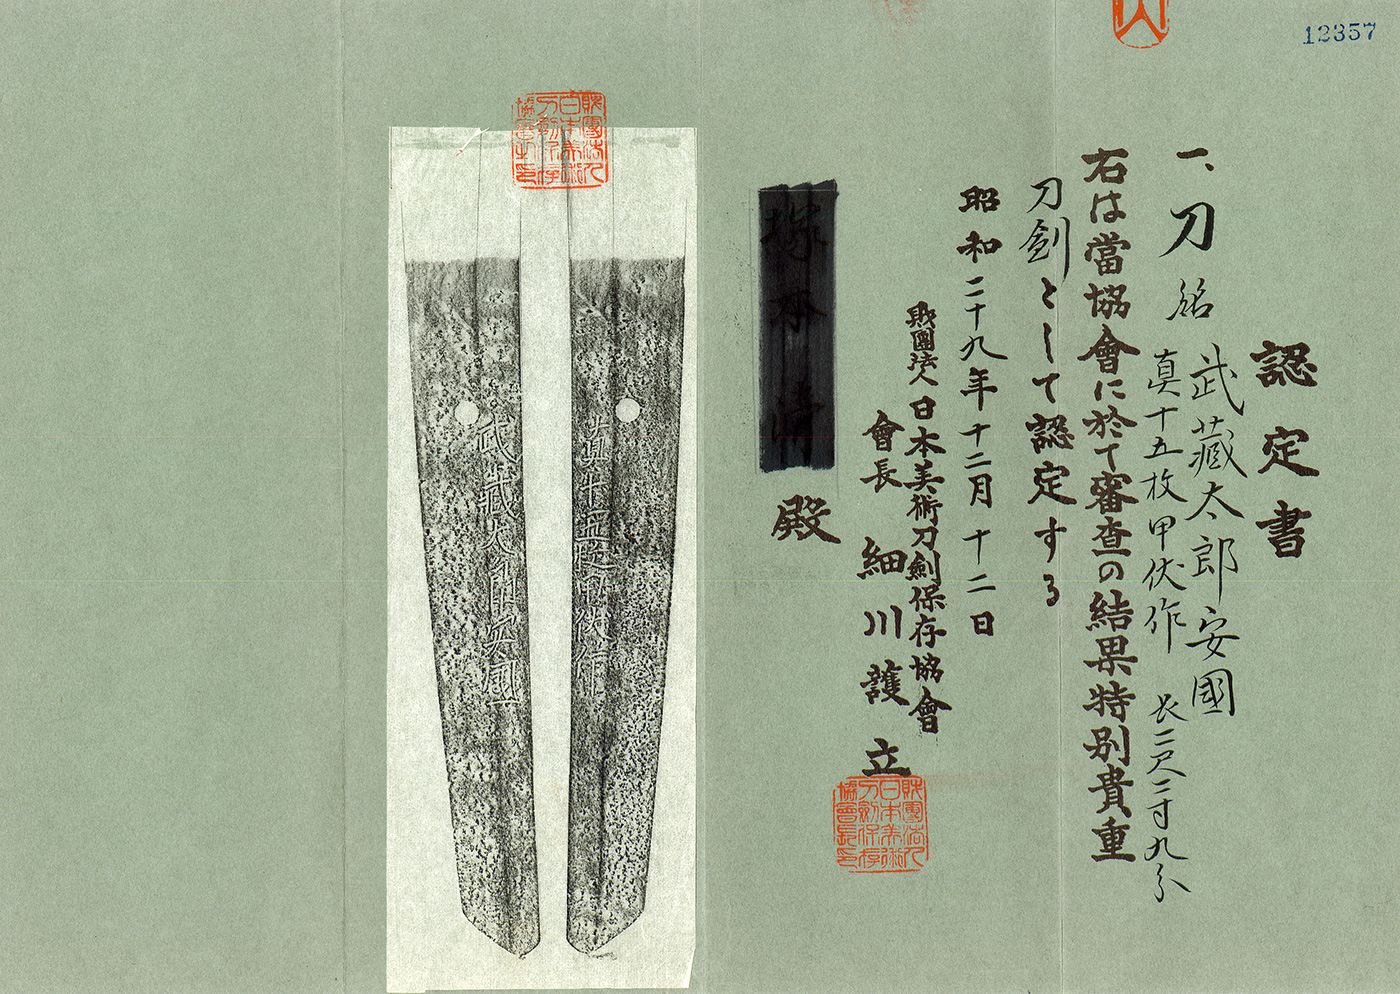 12357
認定書
一、刀 銘 武藏太郎安國
真十五枚甲伏作 長二尺二寸九分
右は當協會に於て審査の結果特別貴重
刀劍として認定する
昭和二十九年十二月十二日
財團法人日本美術刀劍保存協會
會長 細川護立
殿
財團法人
日本美術
刀劍保存
協會長印
財團法人
日本美術
刀劍保存
武藏太郎安國